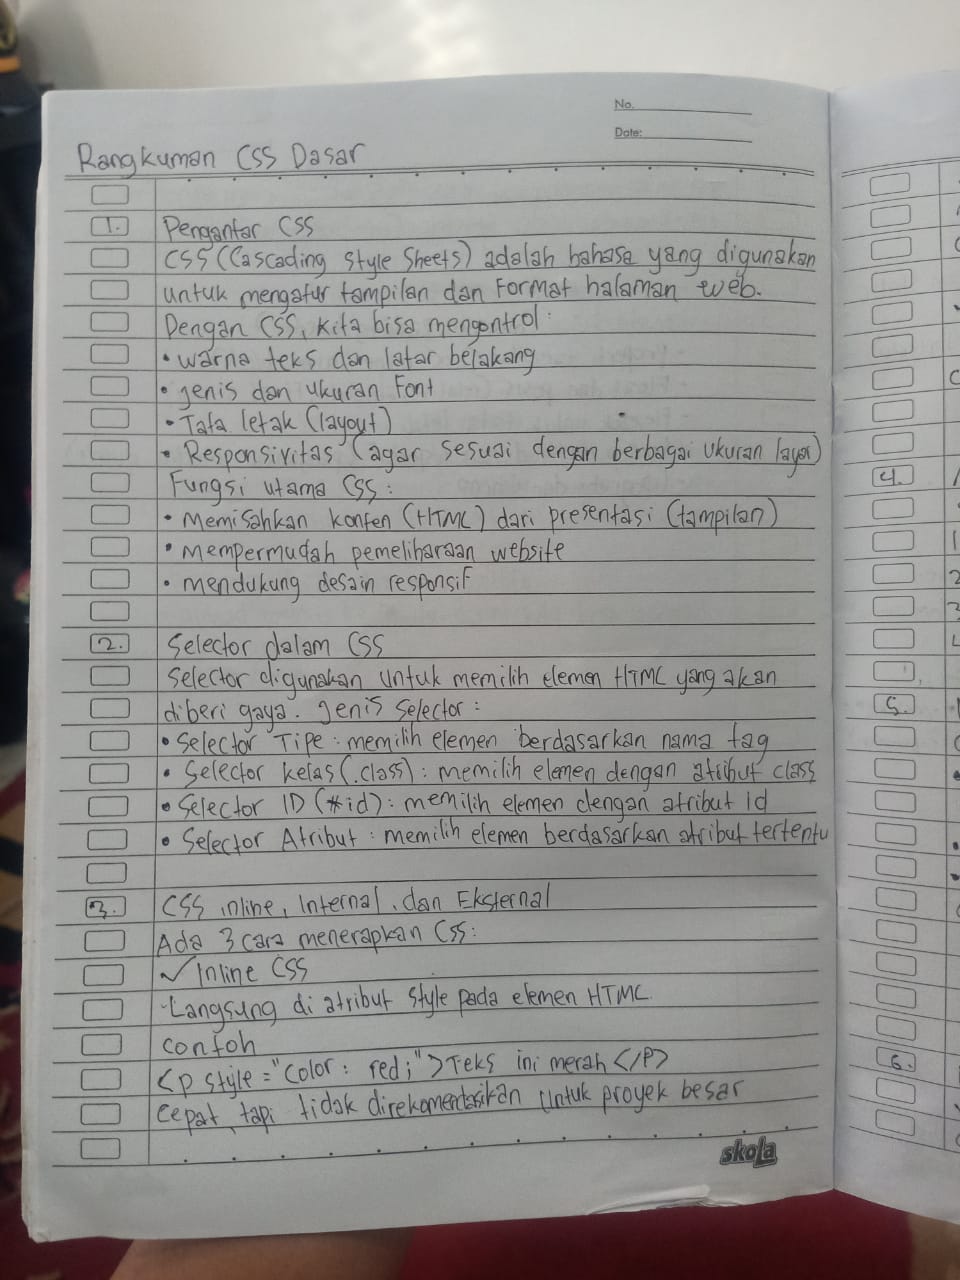 No.
Date:
Rangkuman CSS Dasar
1. Pengantar CSS
CSS (Cascading Style Sheets) adalah bahasa yang digunakan
untuk mengatur tampilan dan Format halaman web.
Dengan CSS, kita bisa mengontrol:
• warna teks dan latar belakang
• jenis dan ukuran Font
• Tata letak (layout)
• Responsivitas (agar sesuai dengan berbagai ukuran layar)
Fungsi utama CSS:
• Memisahkan konten (HTML) dari presentasi (tampilan)
• mempermudah pemeliharaan website
• mendukung desain responsif
2. Selector dalam CSS
Selector digunakan untuk memilih elemen HTML yang akan
diberi gaya. Jenis Selector:
• Selector Tipe: memilih elemen berdasarkan nama tag
• Selector kelas (.class): memilih elemen dengan atribut class
• Selector ID (#id): memilih elemen dengan atribut Id
• Selector Atribut: memilih elemen berdasarkan atribut tertentu
3. CSS inline, Internal, dan Eksternal
Ada 3 cara menerapkan CSS:
✓ Inline CSS
-Langsung di atribut style pada elemen HTML.
contoh
<p style="color: red;">Teks ini merah</p>
cepat, tapi tidak direkomendasikan untuk proyek besar
skola
4.
5.
6.